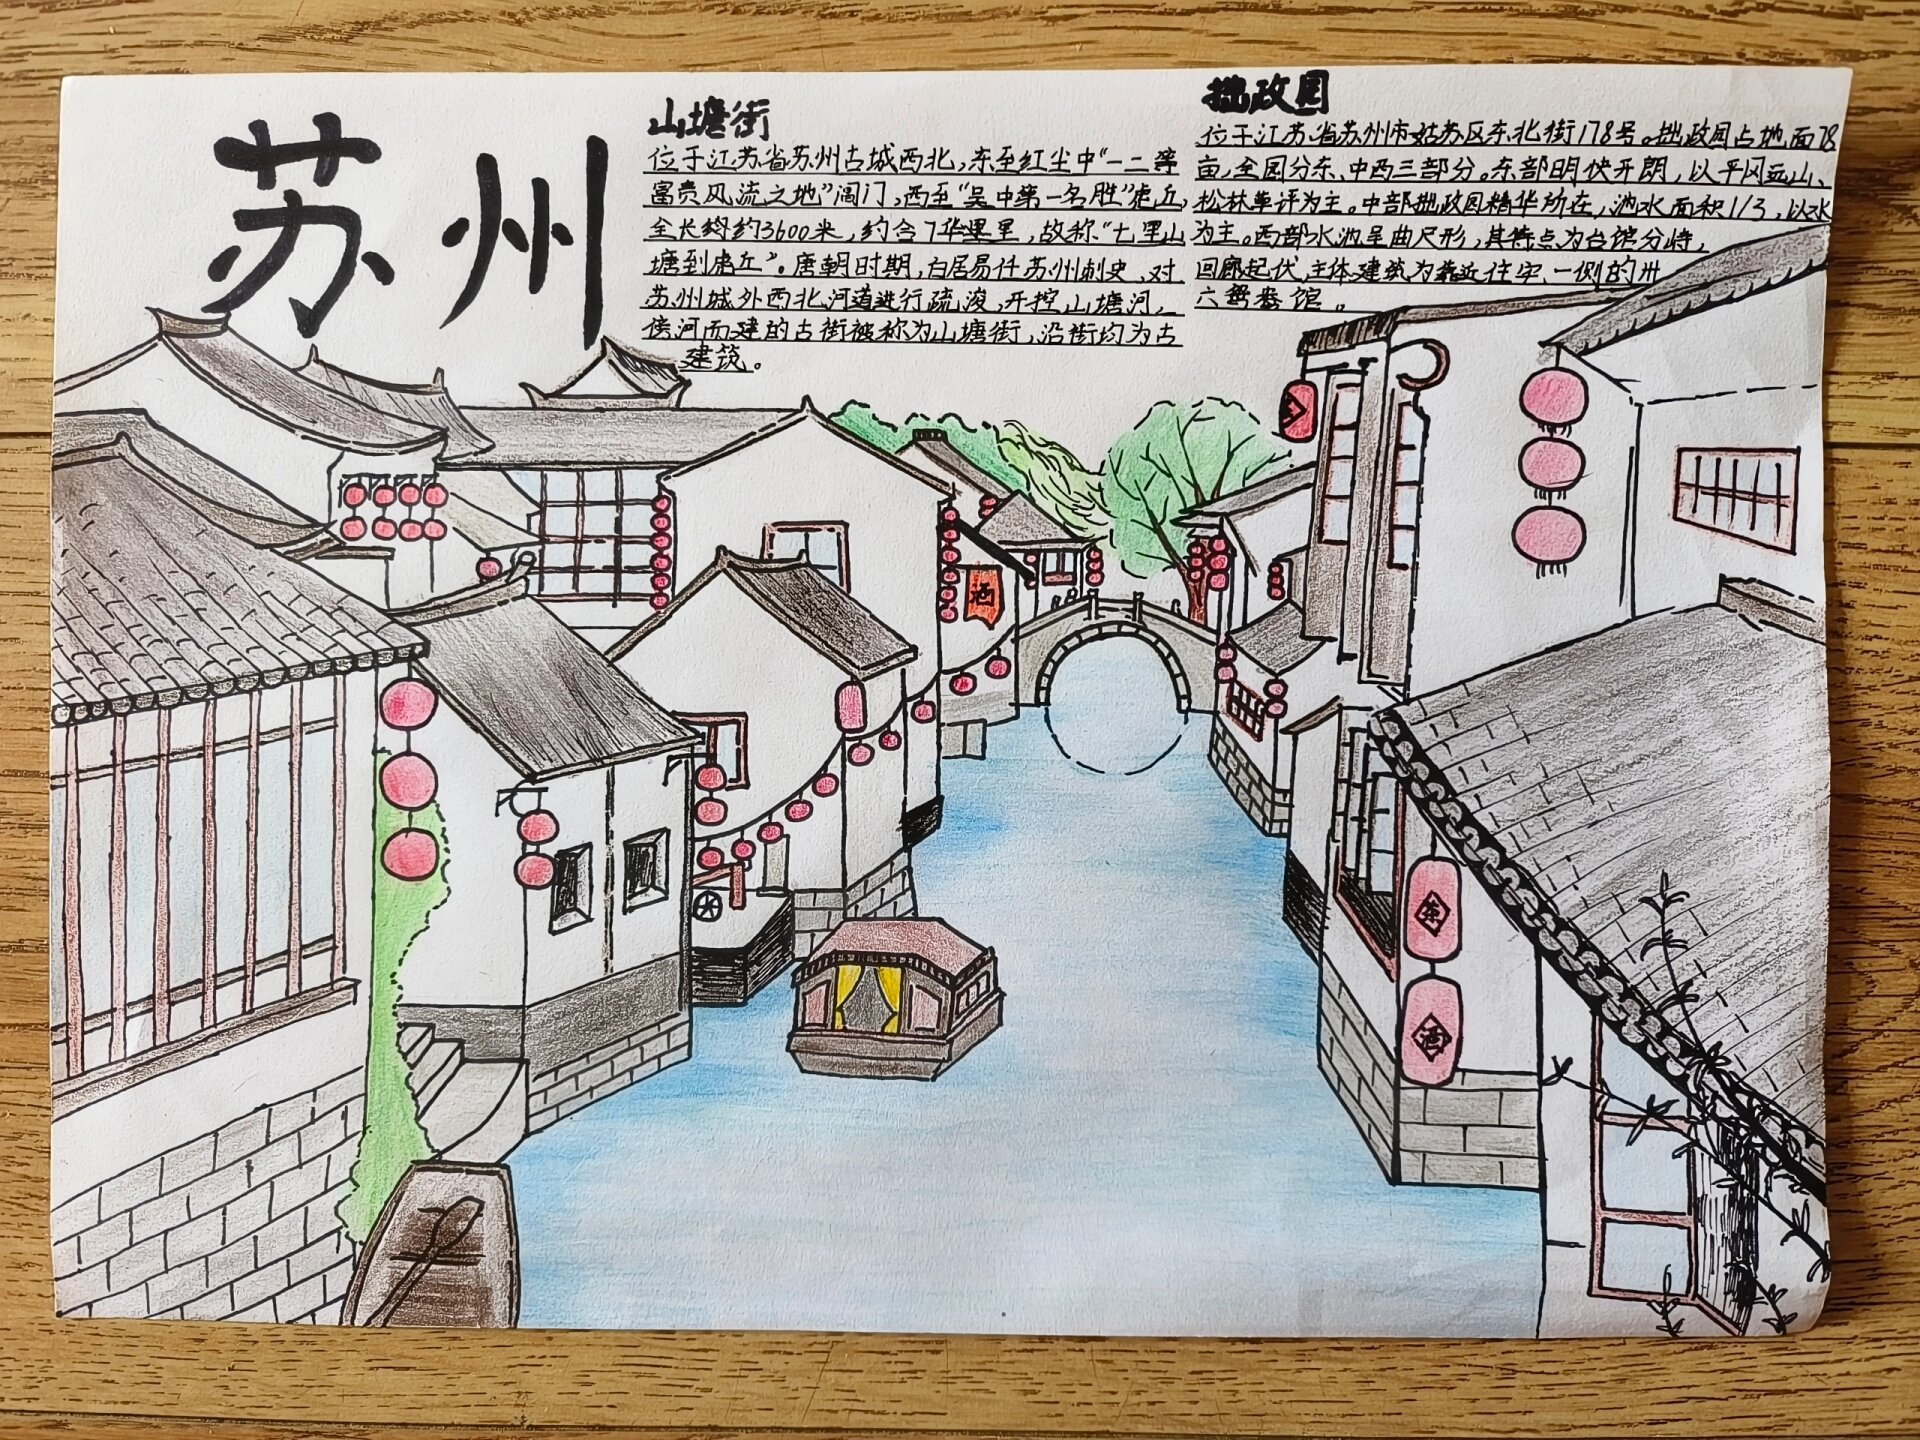 苏州
山塘街
位于江苏省苏州古城西北，东至红尘中“一二等
富贵风流之地”阊门，西至“吴中第一名胜”虎丘，
全长约3600米，约合7华里，故称“七里山
塘到虎丘”。唐朝时期，白居易任苏州刺史，对
苏州城外西北河道进行疏浚，开挖山塘河，
傍河而建的古街被称为山塘街，沿街均为古
建筑。
拙政园
位于江苏省苏州市姑苏区东北街178号。拙政园占地面78
亩，全园分东、中西三部分。东部明快开朗，以平冈远山、
松林草评为主。中部拙政园精华所在，池水面积1/3，以水
为主。西部水池呈曲尺形，其特点为台馆分峙，
回廊起伏，主体建筑为靠近住宅一侧的卅
六鸳鸯馆。
酒
酒